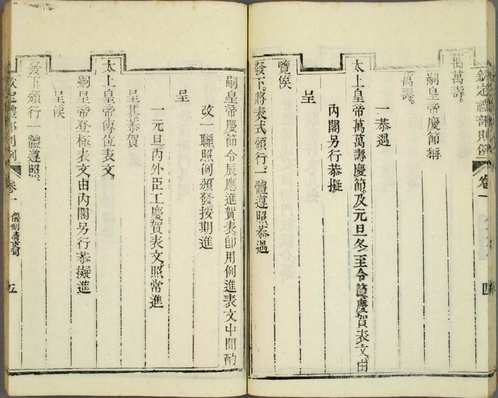 欽定禮部則例
卷一
四
萬萬壽
嗣皇帝慶節稱
萬壽
一恭遇
太上皇帝萬萬壽慶節及元旦冬至令節慶賀表文由
內閣另行恭擬
呈
覽俟
發下將表式頒行一體遵照恭遇
嗣皇帝慶節令辰應進賀表卽用例進表文中間酌
改一聯照例頒發按期進
呈
一元旦內外臣工慶賀表文照常進
呈其恭賀
太上皇帝傳位表文
嗣皇帝登極表文由內閣另行恭擬進
呈俟
發下頒行一體遵照
欽定禮部則例
卷一
五